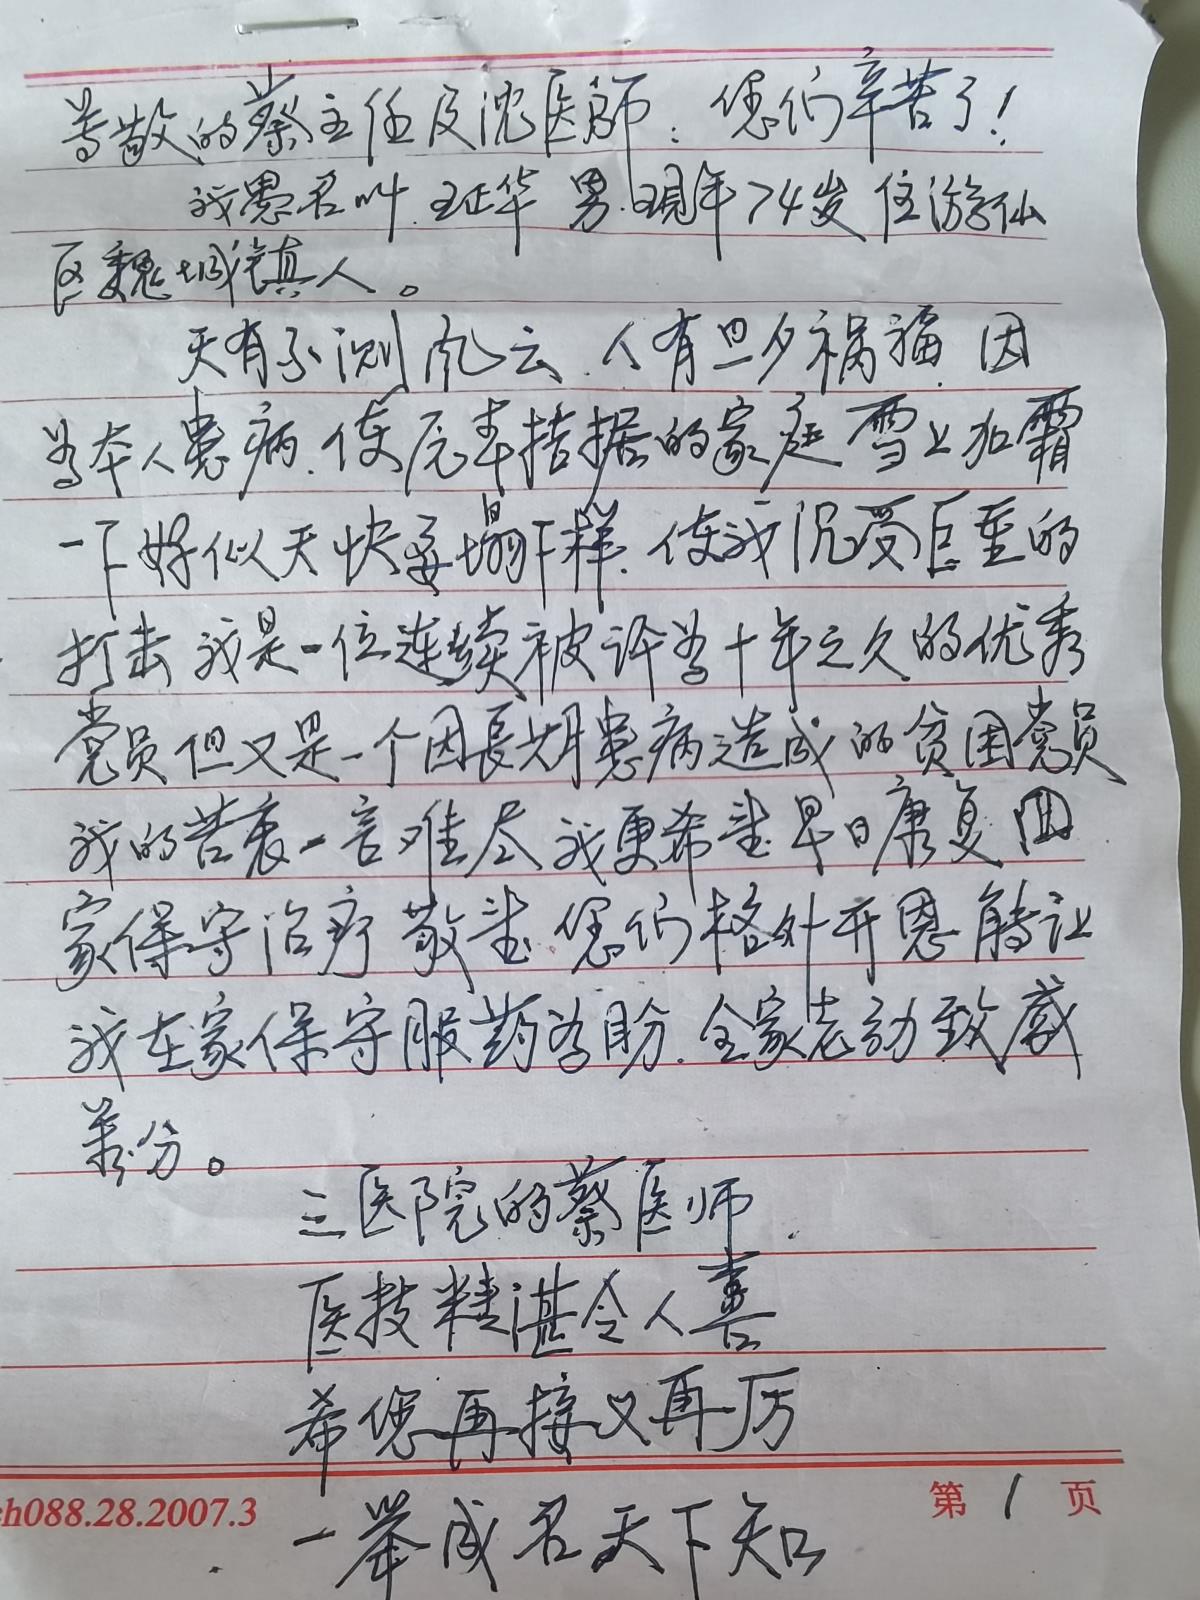 尊敬的蔡主任及沈医師：您们辛苦了！
我愚名叫.王正华 男.現年74岁 住游仙
区魏城镇人。
天有不测风云.人有旦夕祸福.因
为本人患病.使原本拮据的家庭雪上加霜
一下好似天快要塌下样.使我沉受巨重的
打击 我是一位连续被评为十年之久的优秀
党员但又是一个因長期患病造成的贫困党员
我的苦衷一言难尽 我更希望早日康复回
家保守治疗 敬望.您们格外开恩 能让
我在家保守服药为盼.全家老幼致感
万分。
三医院的蔡医师.
医技精湛令人喜
希您再接义再厉
ch088.28.2007.3
第 1 页
一举成名天下知